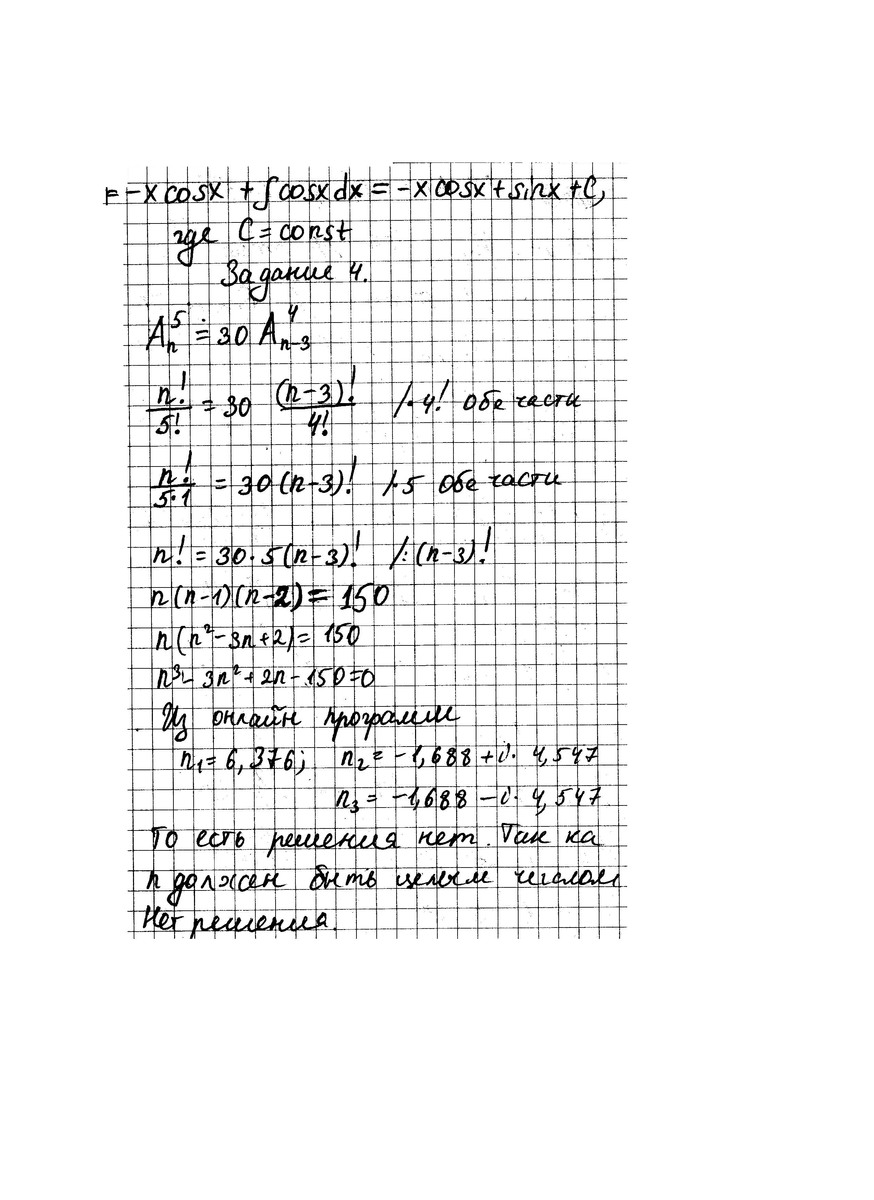 = -x cosx + ∫cosx dx = -x cosx + sinx + C,
где C = const
Задание 4.
A_n^5 = 30 A_{n-3}^4
n!/5! = 30 (n-3)!/4! /·4! обе части
n!/5·1 = 30(n-3)! /·5 обе части
n! = 30·5(n-3)! /:(n-3)!
n(n-1)(n-2) = 150
n(n²-3n+2) = 150
n³ - 3n² + 2n - 150 = 0
Из онлайн программ
n₁ = 6,376; n₂ = -1,688 + i· 4,547
n₃ = -1,688 - i· 4,547
То есть решения нет. Так ка
n должен быть целым числом
Нет решения.